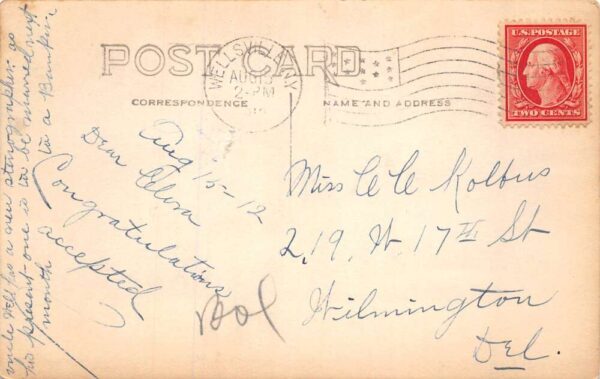 POST CARD
CORRESPONDENCE
NAME AND ADDRESS
WELLSVILLE N.Y.
AUG
2-PM
U.S. POSTAGE
TWO CENTS
Aug 15-12
Dear
Congratulations
accepted
uncle Will has a new stenographer as
his present one is to be married next
month to a Banker.
Miss C C Kolbus
219 W. 17th St
Wilmington
Del.